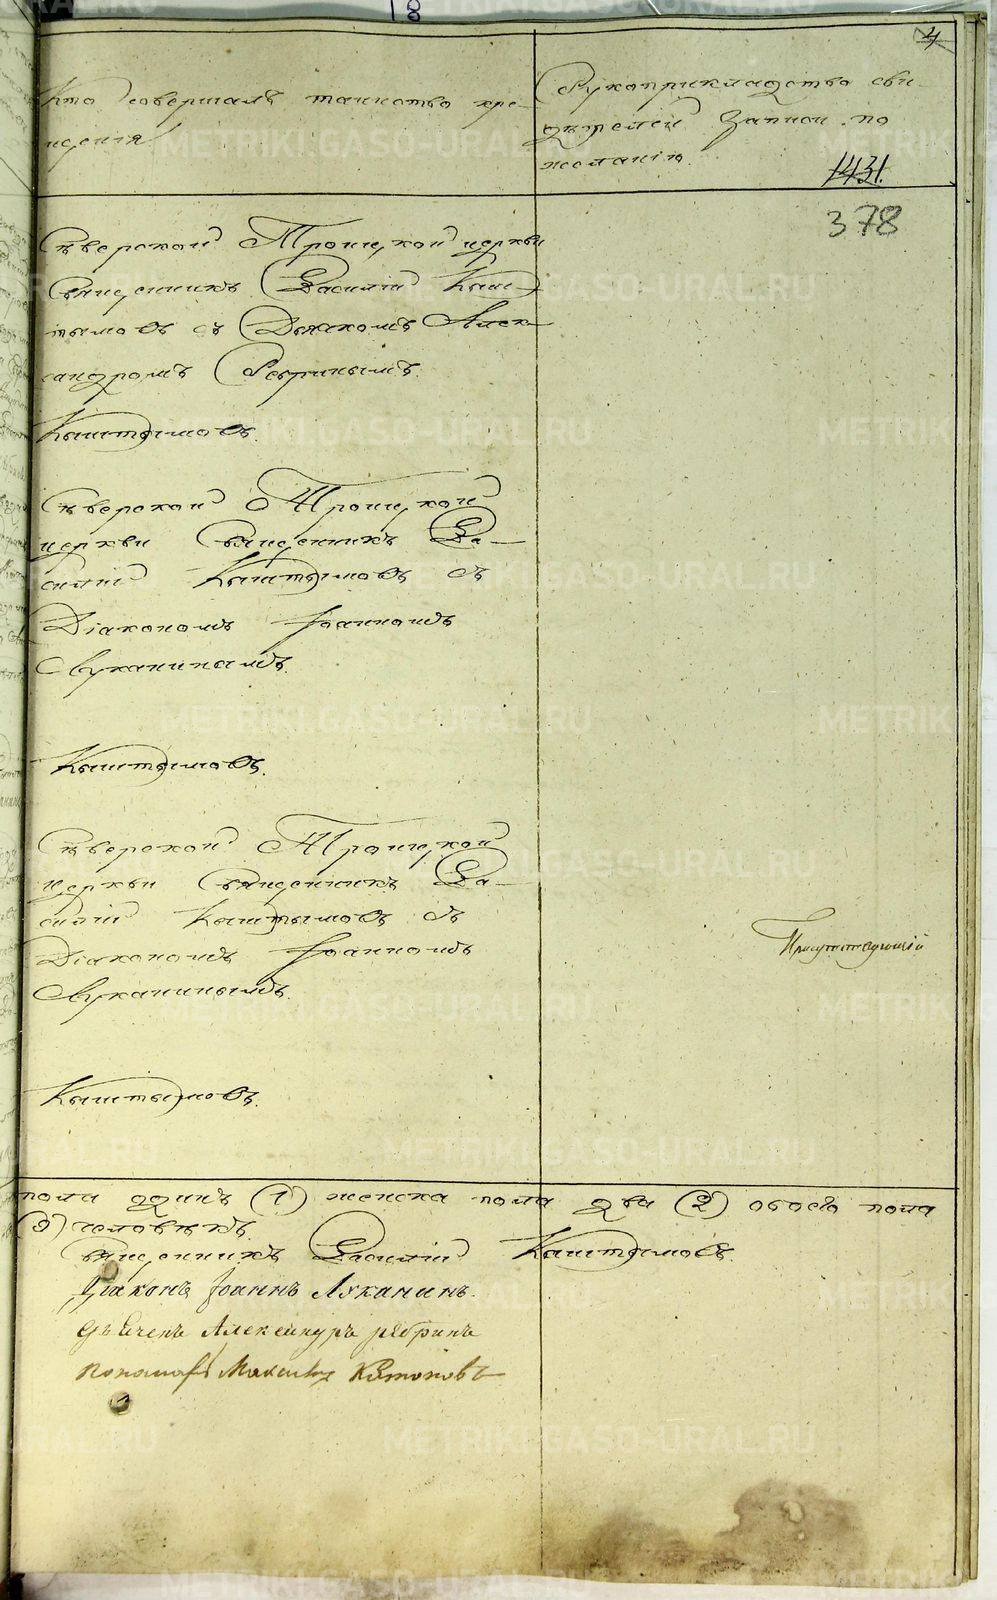 18
4
Кто совершалъ таинство кре-
щенія
Рукоприкладство сви-
дѣтелей записи по
желанію.
1431.
378
Сѣверской Троицкой церкви
Священникъ Василій Кыш-
тымовъ съ Дьякомъ Алек-
сандромъ Ребринымъ.
Кыштымовъ.
Сѣверской Троицкой
церкви Священникъ Ва-
силій Кыштымовъ съ
Діакономъ Іоанномъ
Луканинымъ.
Кыштымовъ.
Сѣверской Троицкой
церкви Священникъ Ва-
силій Кыштымовъ съ
Діакономъ Іоанномъ
Луканинымъ.
Кыштымовъ.
пола одинъ (1) женска пола два (2) обоего пола
(3) человѣкъ.
Священникъ Василій Кыштымовъ.
Діаконъ Іоаннъ Луканинъ.
Александръ Ребринъ
Пономарь
METRIKI.GASO-URAL.RU